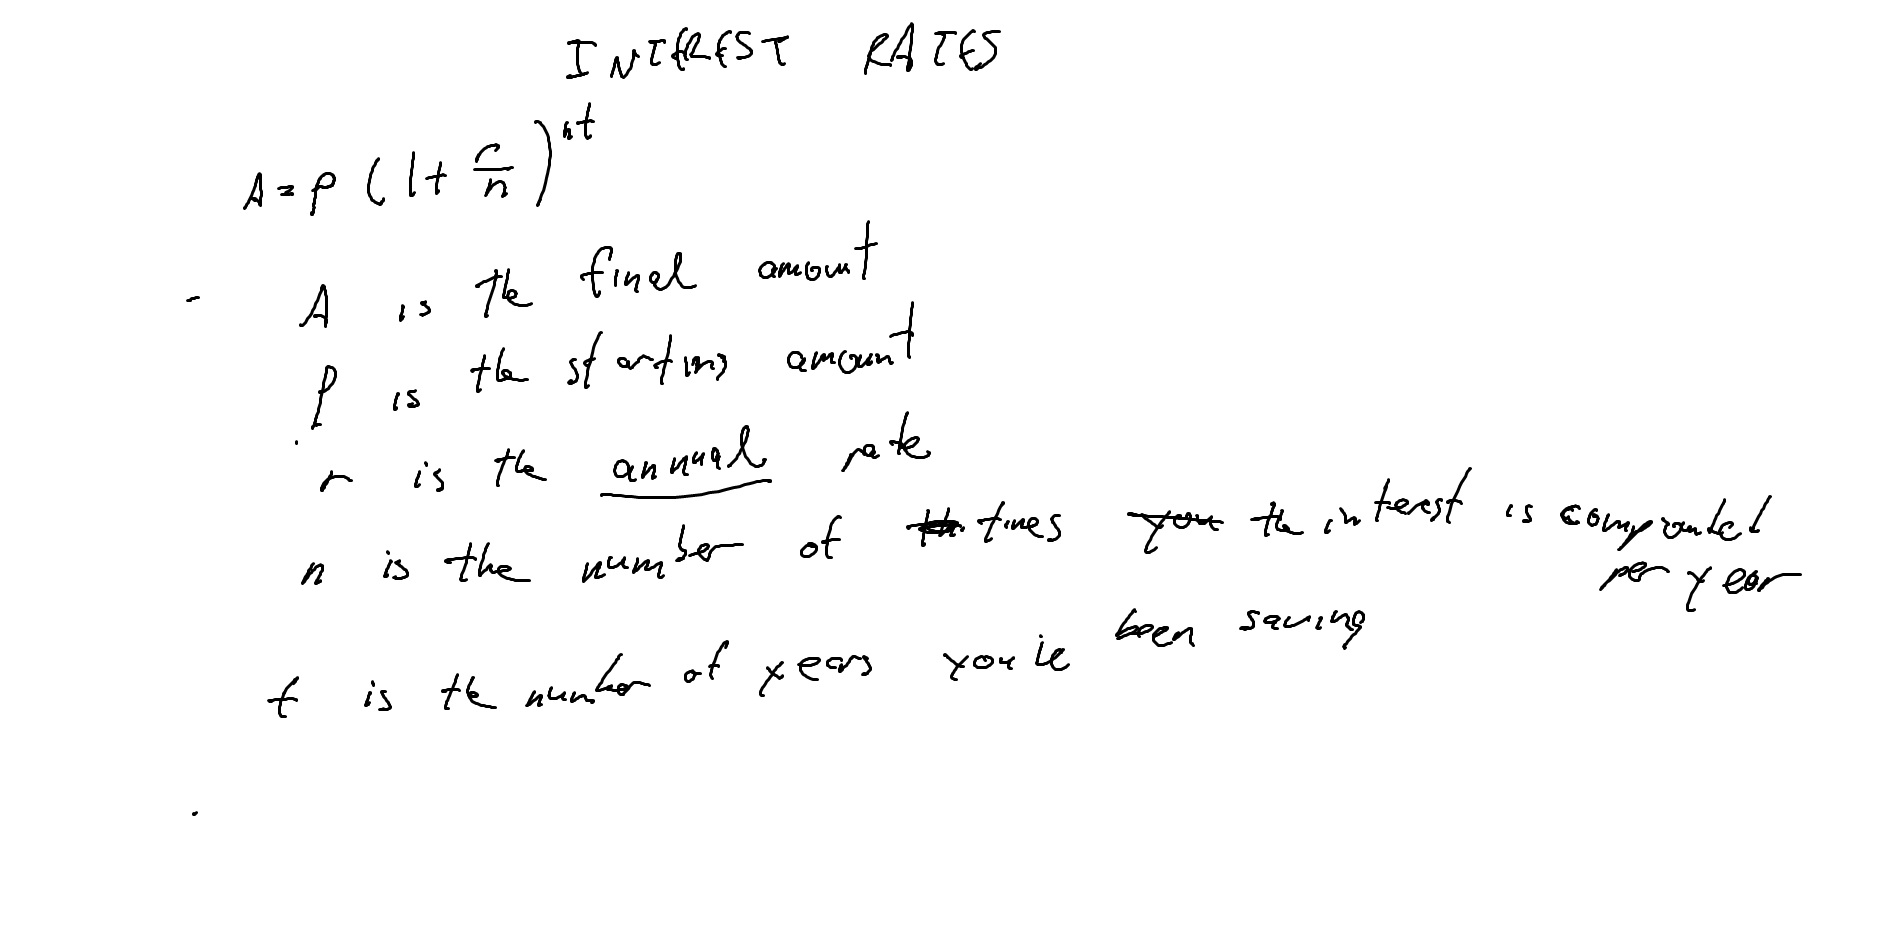 INTEREST RATES
A = P (1 + r/n)^nt
- A is the final amount
P is the starting amount
r is the annual rate
n is the number of times the interest is compounded
per year
t is the number of years you've been saving